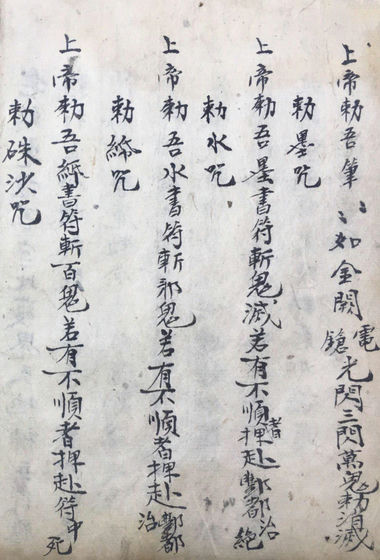 上帝勅吾筆〻〻如金闕電鎗光閃三閃萬鬼勅消滅
勅墨咒
上帝勅吾墨書符斬鬼滅若有不順者押赴酆都治絕
勅水咒
上帝勅吾水書符斬邪鬼若有不順者押赴酆都治
勅紙咒
上帝勅吾紙書符斬百鬼若有不順者押赴符中死
勅硃沙咒